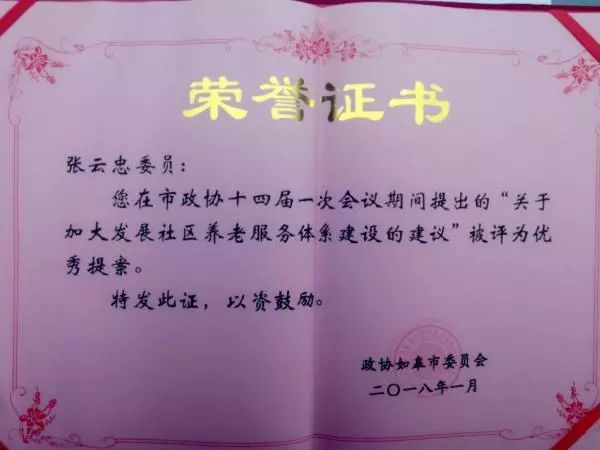 荣誉证书
张云忠委员：
您在市政协十四届一次会议期间提出的“关于
加大发展社区养老服务体系建设的建议”被评为优
秀提案。
特发此证，以资鼓励。
政协如皋市委员会
二〇一八年一月